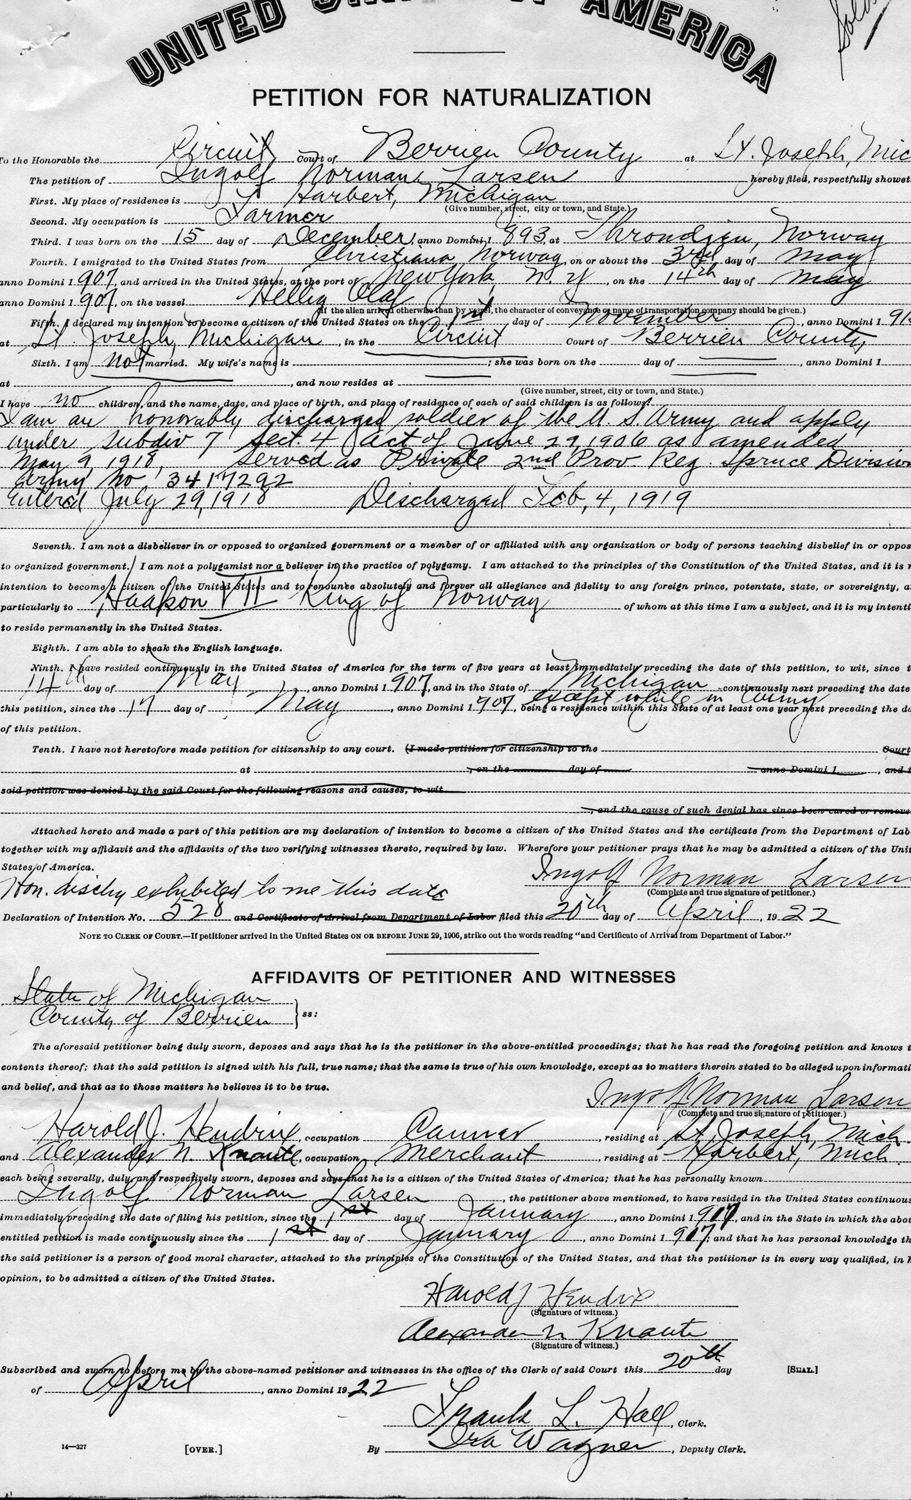 UNITED STATES OF AMERICA
PETITION FOR NATURALIZATION
To the Honorable the Circuit Court of Berrien County at St. Joseph, Mic
The petition of Ingolf Norman Larsen hereby filed, respectfully showet
First. My place of residence is Harbert, Michigan
(Give number, street, city or town, and State.)
Second. My occupation is Farmer
Third. I was born on the 15 day of December, anno Domini 1 893, at Throndjen, Norway
Fourth. I emigrated to the United States from Christiana, Norway, on or about the 3rd day of May
anno Domini 1 907, and arrived in the United States, at the port of New York N. Y on the 14th day of May
anno Domini 1 907, on the vessel Hellig Olaf
(If the alien arrived otherwise than by vessel, the character of conveyance or name of transportation company should be given.)
Fifth. I declared my intention to become a citizen of the United States on the 1st day of November, anno Domini 1 91
at St. Joseph, Michigan, in the Circuit Court of Berrien County
Sixth. I am not married. My wife's name is ; she was born on the day of , anno Domini 1
at , and now resides at
(Give number, street, city or town, and State.)
I have no children, and the name, date, and place of birth, and place of residence of each of said children is as follows:
I am an honorably discharged soldier of the U. S. Army and apply
under Subdiv 7 Sect. 4 Act of June 29, 1906 as amended
May 9, 1918, Served as Private 2nd Prov. Reg. Spruce Division
Army No. 3417292
Entered July 29, 1918 Discharged Feb, 4, 1919
Seventh. I am not a disbeliever in or opposed to organized government or a member of or affiliated with any organization or body of persons teaching disbelief in or oppos
to organized government. I am not a polygamist nor a believer in the practice of polygamy. I am attached to the principles of the Constitution of the United States, and it is m
intention to become a citizen of the United States and to renounce absolutely and forever all allegiance and fidelity to any foreign prince, potentate, state, or sovereignty, a
particularly to Haakon VII King of Norway of whom at this time I am a subject, and it is my intenti
to reside permanently in the United States.
Eighth. I am able to speak the English language.
Ninth. I have resided continuously in the United States of America for the term of five years at least immediately preceding the date of this petition, to wit, since t
14th day of May, anno Domini 1 907, and in the State of Michigan continuously next preceding the date
this petition, since the 17 day of May, anno Domini 1 907, except while in Army being a residence within this State of at least one year next preceding the da
of this petition.
Tenth. I have not heretofore made petition for citizenship to any court. (I made petition for citizenship to the Court
at , on the day of , anno Domini 1 , and t
said petition was denied by the said Court for the following reasons and causes, to wit
, and the cause of such denial has since been cured or remove
Attached hereto and made a part of this petition are my declaration of intention to become a citizen of the United States and the certificate from the Department of Lab
together with my affidavit and the affidavits of the two verifying witnesses thereto, required by law. Wherefore your petitioner prays that he may be admitted a citizen of the Unit
States of America.
Ingolf Norman Larsen
(Complete and true signature of petitioner.)
Hon. dischg exhibited to me this date
Declaration of Intention No. 528 and Certificate of Arrival from Department of Labor filed this 20th day of April, 19 22
NOTE TO CLERK OF COURT.—If petitioner arrived in the United States ON OR BEFORE JUNE 29, 1906, strike out the words reading "and Certificate of Arrival from Department of Labor."
AFFIDAVITS OF PETITIONER AND WITNESSES
State of Michigan
County of Berrien } ss:
The aforesaid petitioner being duly sworn, deposes and says that he is the petitioner in the above-entitled proceedings; that he has read the foregoing petition and knows t
contents thereof; that the said petition is signed with his full, true name; that the same is true of his own knowledge, except as to matters therein stated to be alleged upon informati
and belief, and that as to those matters he believes it to be true.
Ingolf Norman Larsen
(Complete and true signature of petitioner.)
Harold J. Hendrix, occupation Canner, residing at St. Joseph, Mich.
and Alexander N Knaute, occupation Merchant, residing at Harbert, Mich
each being severally, duly and respectively sworn, deposes and says that he is a citizen of the United States of America; that he has personally known
Ingolf Norman Larsen, the petitioner above mentioned, to have resided in the United States continuous
immediately preceding the date of filing his petition, since the 1st day of January, anno Domini 1 917, and in the State in which the abo
entitled petition is made continuously since the 1st day of January, anno Domini 1 917; and that he has personal knowledge th
the said petitioner is a person of good moral character, attached to the principles of the Constitution of the United States, and that the petitioner is in every way qualified, in h
opinion, to be admitted a citizen of the United States.
Harold J Hendrix
(Signature of witness.)
Alexander N Knaute
(Signature of witness.)
Subscribed and sworn to before me by the above-named petitioner and witnesses in the office of the Clerk of said Court this 20th day [SEAL.]
of April, anno Domini 19 22
Frank L. Hall, Clerk.
14—327 [OVER.] By Ira Wagner, Deputy Clerk.